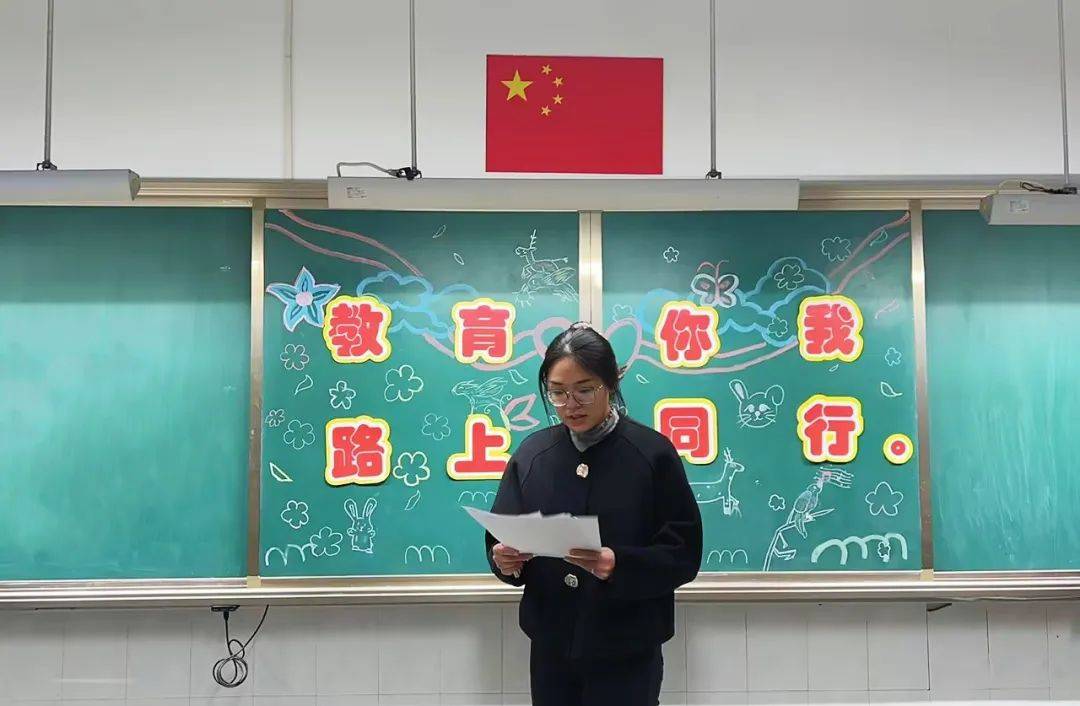 教育你我
路上同行。